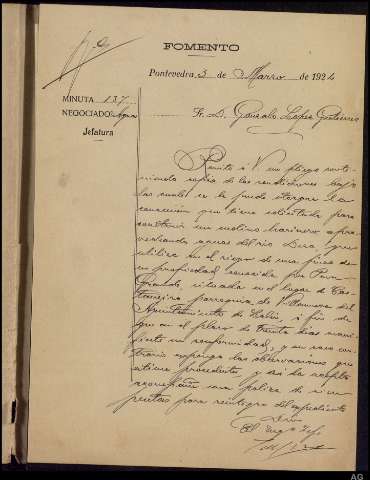 FOMENTO
Pontevedra 3 de Marzo de 1924
MINUTA 137
NEGOCIADO Aguas
Jefatura
Sr. D. Gonzalo López Gutiérrez
Remito á V. un pliego conte-
niendo copia de las condiciones bajo
las cuales se le puede otorgar la
concesión que tiene solicitada para
construir un molino harinero apro-
vechando aguas del río Deza, que
utiliza en el riego de una finca de
su propiedad, conocida por
situada en el lugar de
parroquia de Villanueva del
Ayuntamiento de Lalín á fin de
que en el plazo de treinta días mani-
fieste su conformidad, ó en caso con-
trario exponga las observaciones que
estime procedente, y así de aceptar
acompañe una póliza de
pesetas para reintegro del expediente
El Ingº Jefe
AG